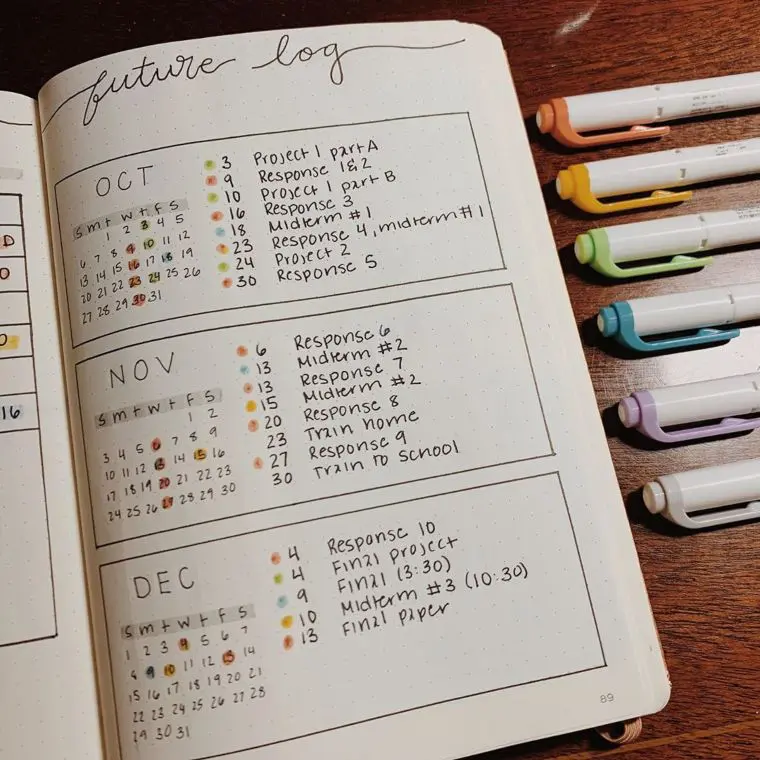 future log
OCT
S M T W T F S
1 2 3 4 5
6 7 8 9 10 11 12
13 14 15 16 17 18 19
20 21 22 23 24 25 26
27 28 29 30 31
3 Project 1 part A
9 Response 1&2
10 Project 1 part B
16 Response 3
18 Midterm #1
23 Response 4, midterm #1
24 Project 2
30 Response 5
NOV
S M T W T F S
1 2
3 4 5 6 7 8 9
10 11 12 13 14 15 16
17 18 19 20 21 22 23
24 25 26 27 28 29 30
6 Response 6
13 Midterm #2
13 Response 7
15 Midterm #2
20 Response 8
23 Train home
27 Response 9
30 Train to school
DEC
S M T W T F S
1 2 3 4 5 6 7
8 9 10 11 12 13 14
15 16 17 18 19 20 21
22 23 24 25 26 27 28
29 30 31
4 Response 10
4 Final project
9 Final (3:30)
10 Midterm #3 (10:30)
13 Final paper
89
16